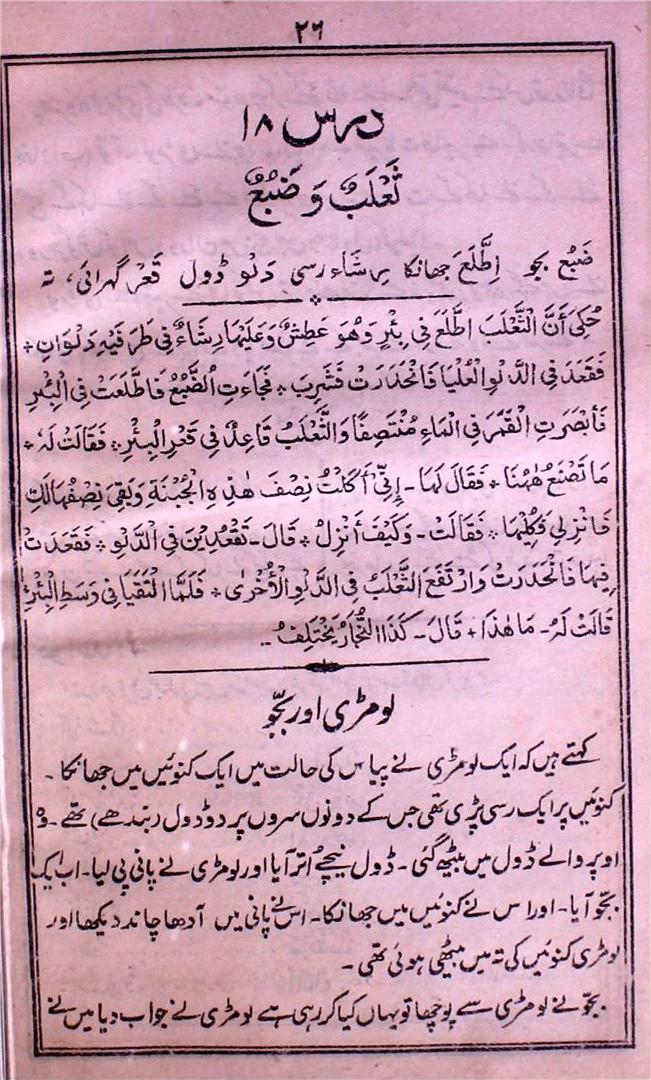 ۲۶
درس ۱۸
ثَعْلَبٌ وَ ضَبُعٌ
ضَبُع بجو اِطَّلَعَ جھانکا رِشَاء رسی دَلْو ڈول قَعْر گہرائی، تہ
حُکِیَ أَنَّ الثَّعْلَبَ اطَّلَعَ فِی بِئْرٍ وَهُوَ عَطِشٌ وَعَلَیْهَا رِشَاءٌ فِی طَرَفَیْهِ دَلْوَانِ ٭
فَقَعَدَ فِی الدَّلْوِ الْعُلْیَا فَانْحَدَرَتْ فَشَرِبَ ٭ فَجَاءَتِ الضَّبُعُ فَاطَّلَعَتْ فِی الْبِئْرِ
فَأَبْصَرَتِ الْقَمَرَ فِی الْمَاءِ مُنْتَصِفًا وَالثَّعْلَبُ قَاعِدٌ فِی قَعْرِ الْبِئْرِ ٭ فَقَالَتْ لَهٗ ٭
مَا تَصْنَعُ هٰهُنَا ٭ فَقَالَ لَهَا ۔ إِنِّی أَکَلْتُ نِصْفَ هٰذِهِ الْجُبْنَةِ وَبَقِیَ نِصْفُهَا لَكِ
فَانْزِلِی فَکُلِیْهَا ٭ فَقَالَتْ ۔ وَکَیْفَ أَنْزِلُ ٭ قَالَ ۔ تَقْعُدِیْنَ فِی الدَّلْوِ ٭ فَقَعَدَتْ
فِیهَا فَانْحَدَرَتْ وَارْتَفَعَ الثَّعْلَبُ فِی الدَّلْوِ الْأُخْرٰی ٭ فَلَمَّا الْتَقَیَا فِی وَسَطِ الْبِئْرِ
قَالَتْ لَهٗ ۔ مَا هٰذَا ٭ قَالَ ۔ کَذَا التُّجَّارُ یَخْتَلِفُ ۔
لومڑی اور بجّو
کہتے ہیں کہ ایک لومڑی نے پیاس کی حالت میں ایک کنوئیں میں جھانکا ۔
کنوئیں پر ایک رسی پڑی تھی جس کے دونوں سروں پر دو ڈول (بندھے) تھے ۔ وہ
اوپر والے ڈول میں بیٹھ گئی ۔ ڈول نیچے اتر آیا اور لومڑی نے پانی پی لیا ۔ اب ایک
بجّو آیا ۔ اور اس نے کنوئیں میں جھانکا ۔ اس نے پانی میں آدھا چاند دیکھا اور
لومڑی کنوئیں کی تہ میں بیٹھی ہوئی تھی ۔
بجّو نے لومڑی سے پوچھا تو یہاں کیا کر رہی ہے لومڑی نے جواب دیا میں نے